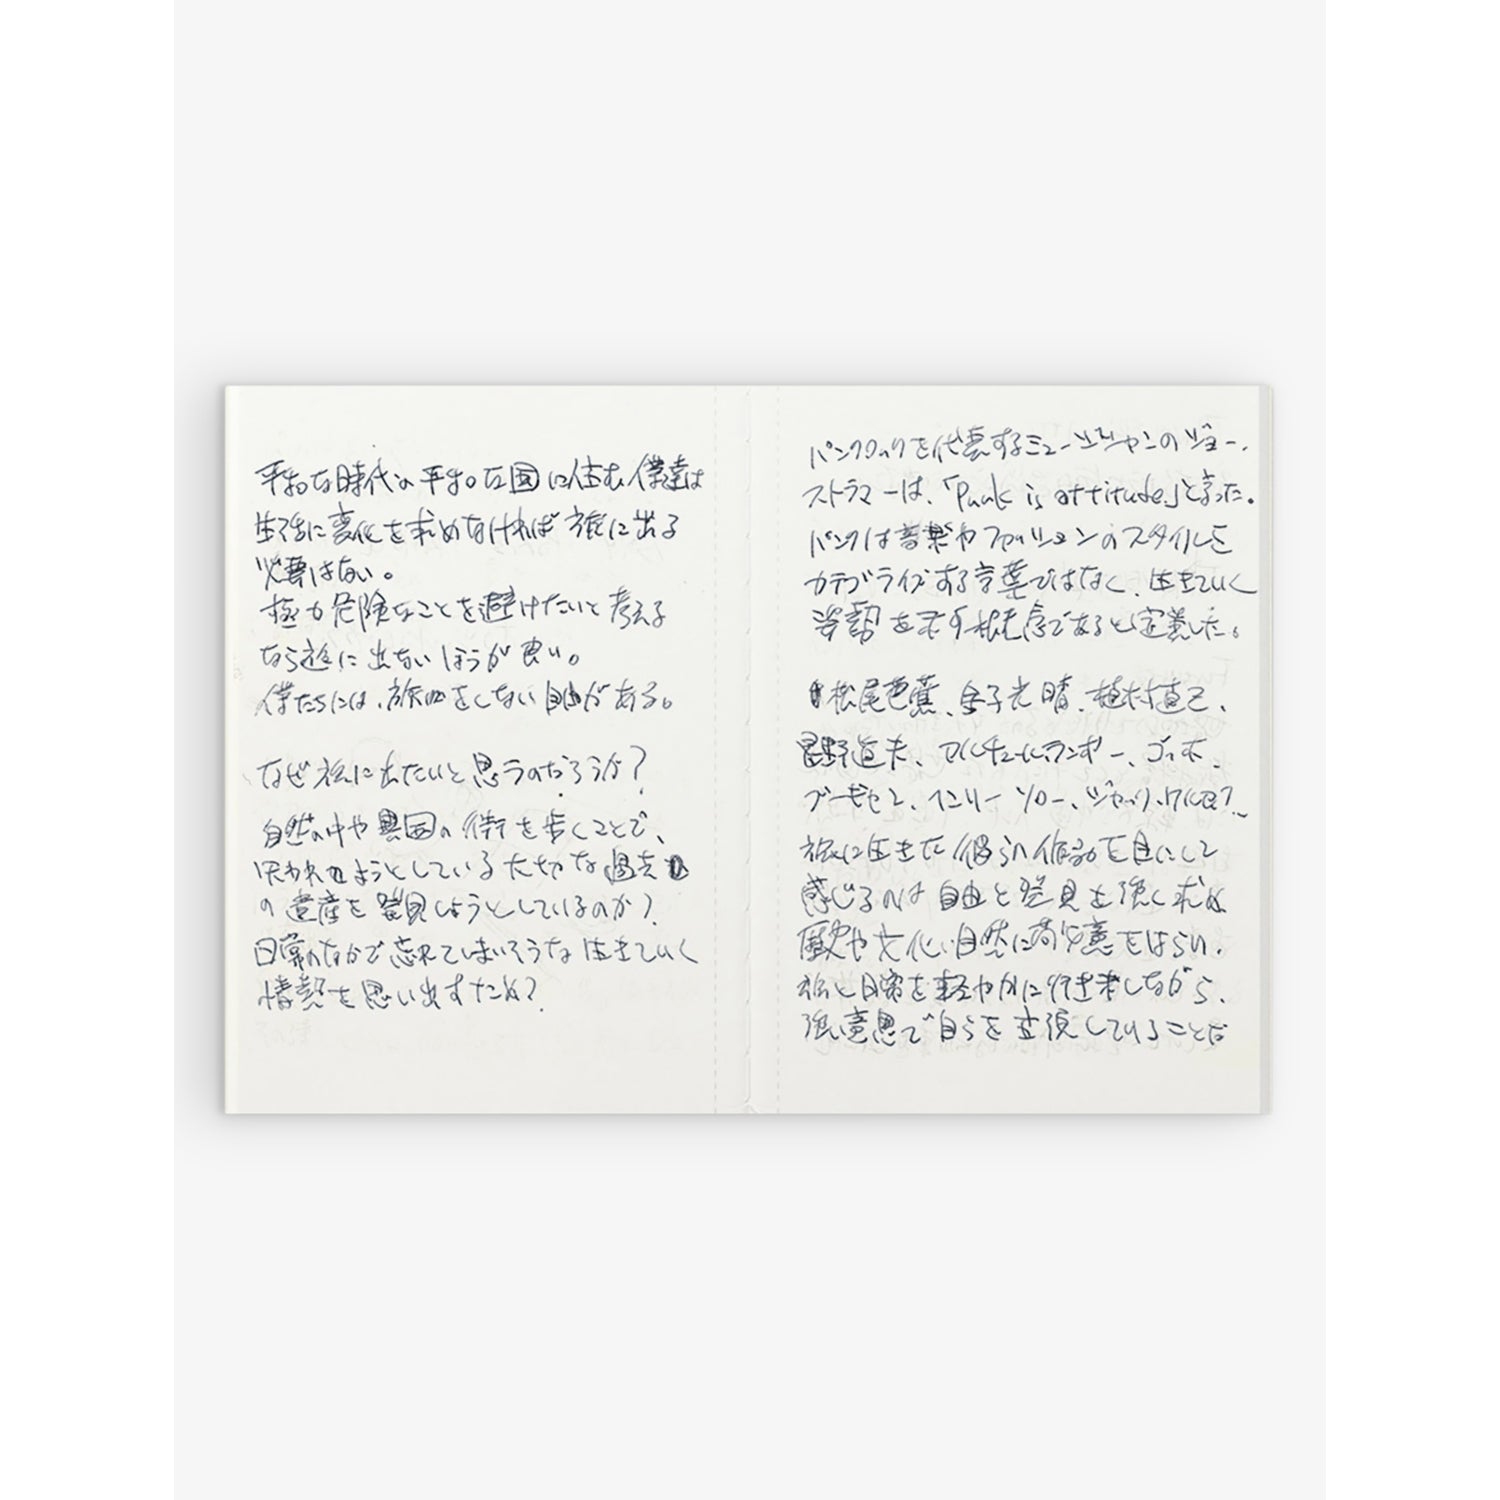 平和な時代の平和な国に住む僕達は
生活に変化を求めなければ旅に出る
必要はない。
極力危険なことを避けたいと考える
なら旅に出ないほうが良い。
僕たちには、旅をしない自由がある。
なぜ旅に出たいと思うのだろうか?
自然の中や異国の街を歩くことで、
失われようとしている大切な過去
の遺産を発見しようとしているのか?
日常のなかで忘れてしまいそうな生きていく
情熱を思い出すため?
パンクロックを代表するミュージシャンのジョー・
ストラマーは、「Punk is attitude.」と言った。
パンクは音楽やファッションのスタイルを
カテゴライズする言葉ではなく、生きていく
姿勢を示す概念であると定義した。
松尾芭蕉、金子光晴、植村直己、
星野道夫、アルチュールランボー、ゴッホ、
ブーギセン、ヘンリーソロー、ジャック・
旅に生きた彼らの作品を目にして
感じるのは自由と発見を強く求め
歴史や文化、自然に敬意をはらい、
旅と日常を軽やかに行き来しながら、
強い意思で自らを主張していることだ